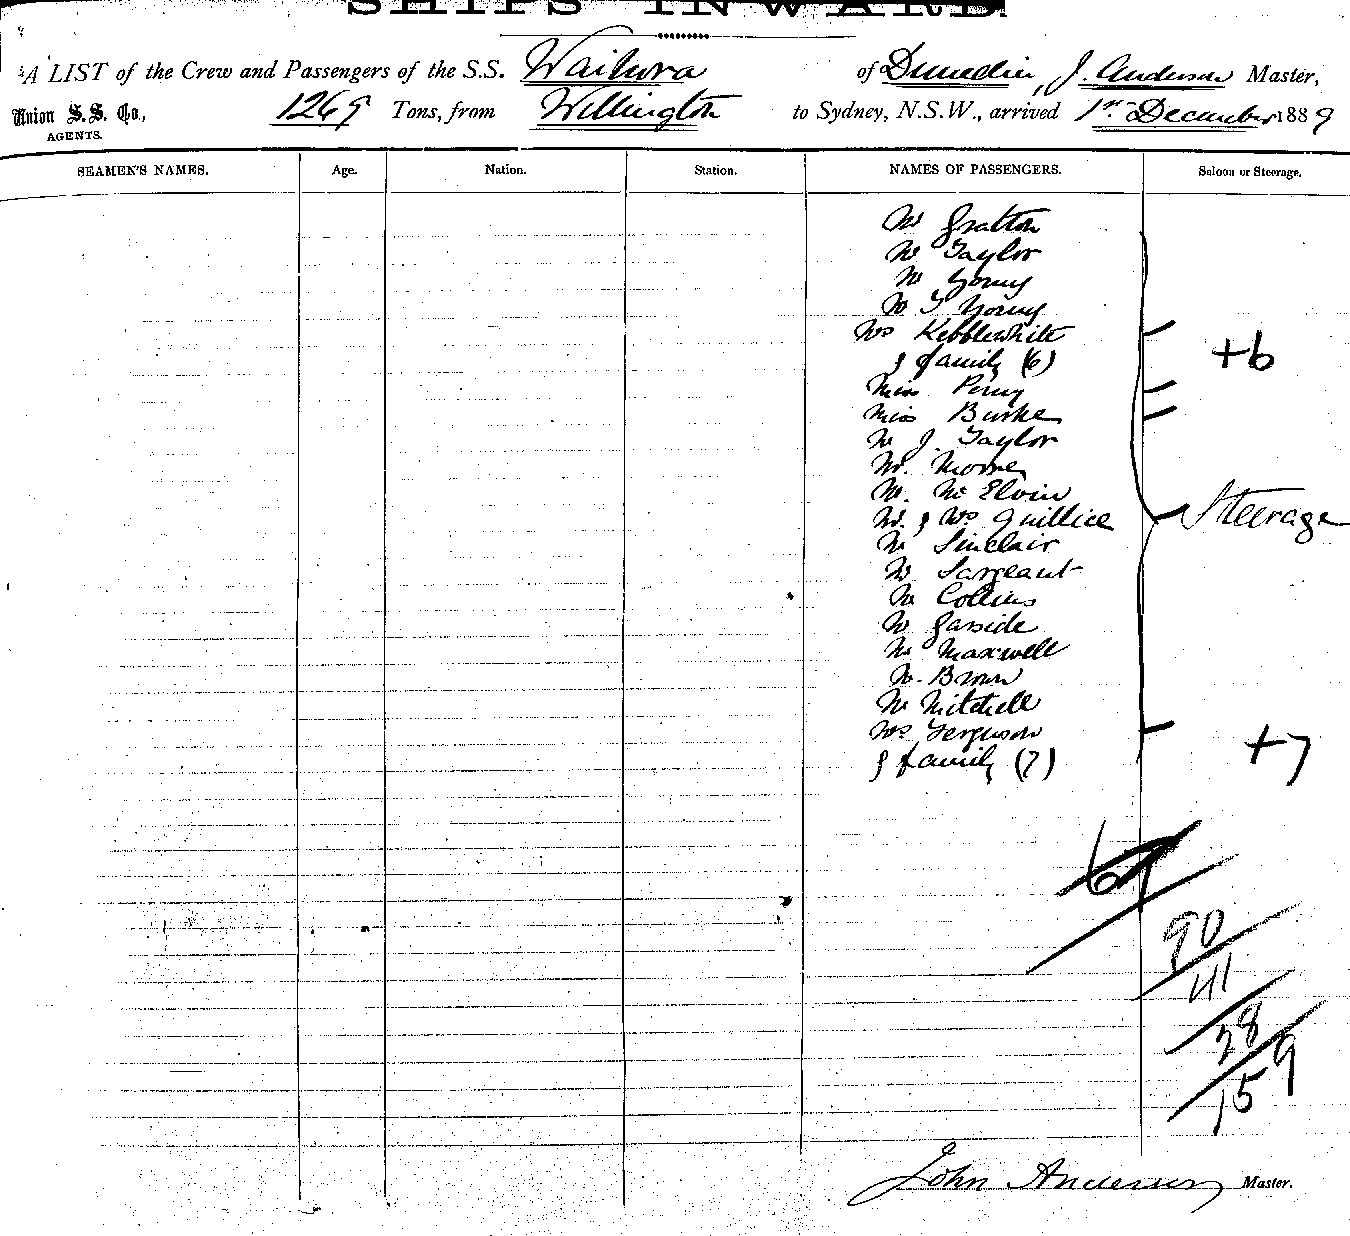 SHIPS INWARD.
A LIST of the Crew and Passengers of the S.S. Waihora of Dunedin, J. Anderson Master,
Union S.S. Co., AGENTS. 1269 Tons, from Wellington to Sydney, N.S.W., arrived 1st December 1889
SEAMEN'S NAMES. Age. Nation. Station. NAMES OF PASSENGERS. Saloon or Steerage.
Mr Gratton
Mr Taylor
Mr Young
Mr T Young
Mrs Kebblewhite
& family (6) +6
Miss Perry
Miss Burke
Mr J. Taylor
Mr. Moore
Mr. McElvin
Mr. & Mrs Guillice Steerage
Mr Sinclair
Mr Sargeant
Mr Collins
Mr Garside
Mr Maxwell
Mr. Brown
Mr Mitchell
Mrs Ferguson
& family (7) +7
90
41
28
159
John Anderson Master.